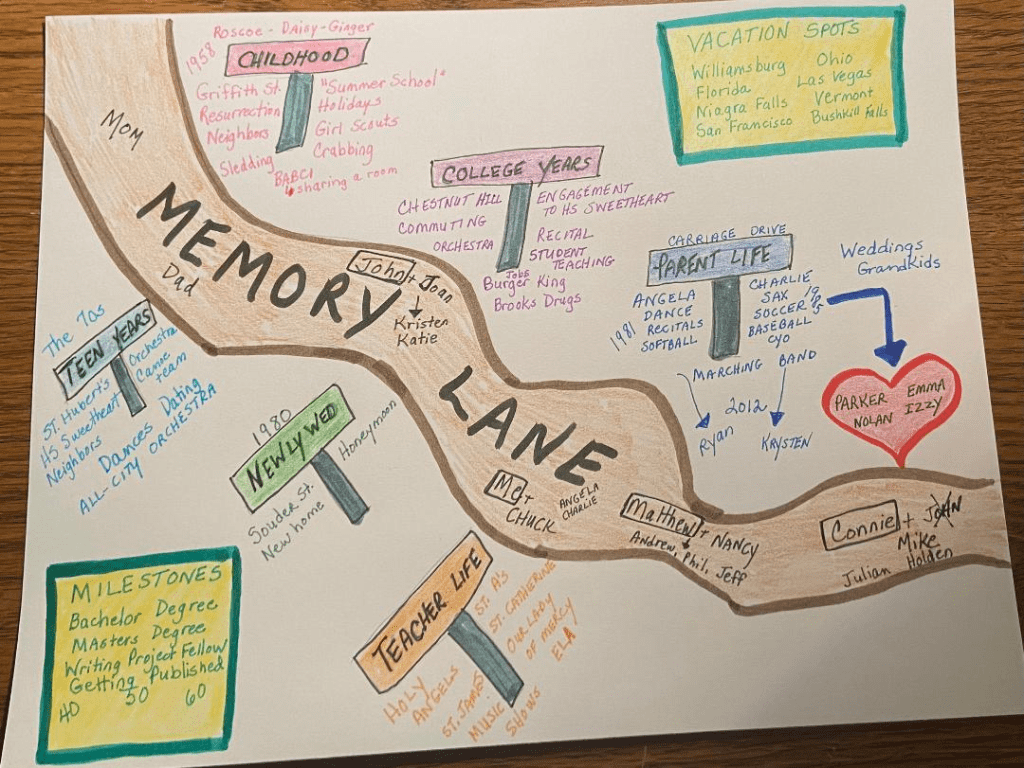 Roscoe - Daisy - Ginger
1958
CHILDHOOD
Griffith St.
Resurrection
Neighbors
Sledding
"Summer School"
Holidays
Girl Scouts
Crabbing
BABCI
sharing a room
VACATION SPOTS
Williamsburg
Florida
Niagra Falls
San Francisco
Ohio
Las Vegas
Vermont
Bushkill Falls
Mom
MEMORY
LANE
Dad
John + Joan
Kristen
Katie
COLLEGE YEARS
CHESTNUT HILL
COMMUTING
ORCHESTRA
ENGAGEMENT
TO HS SWEETHEART
RECITAL
STUDENT
TEACHING
Jobs
Burger King
Brooks Drugs
CARRIAGE DRIVE
PARENT LIFE
1981
ANGELA
DANCE
RECITALS
SOFTBALL
CHARLIE
SAX
SOCCER
BASEBALL
CYO
MARCHING BAND
2012
Ryan
KRYSTEN
Weddings
GrandKids
PARKER
NOLAN
EMMA
IZZY
The 70s
TEEN YEARS
St. Hubert's
HS Sweetheart
Neighbors
Orchestra
Canoe
team
Dating
Dances
ALL-CITY ORCHESTRA
1980
NEWLYWED
Honeymoon
Souder St.
New home
Me +
CHUCK
ANGELA
CHARLIE
Matthew + NANCY
Andrew, Phil, Jeff
Connie + JOHN
Mike
Julian Holden
MILESTONES
Bachelor Degree
MAsters Degree
Writing Project Fellow
Getting Published
40 50 60
TEACHER LIFE
ST. A'S
ST. CATHERINE
OUR LADY
OF MERCY
ELA
HOLY
ANGELS
ST. JAMES
MUSIC
SHOWS